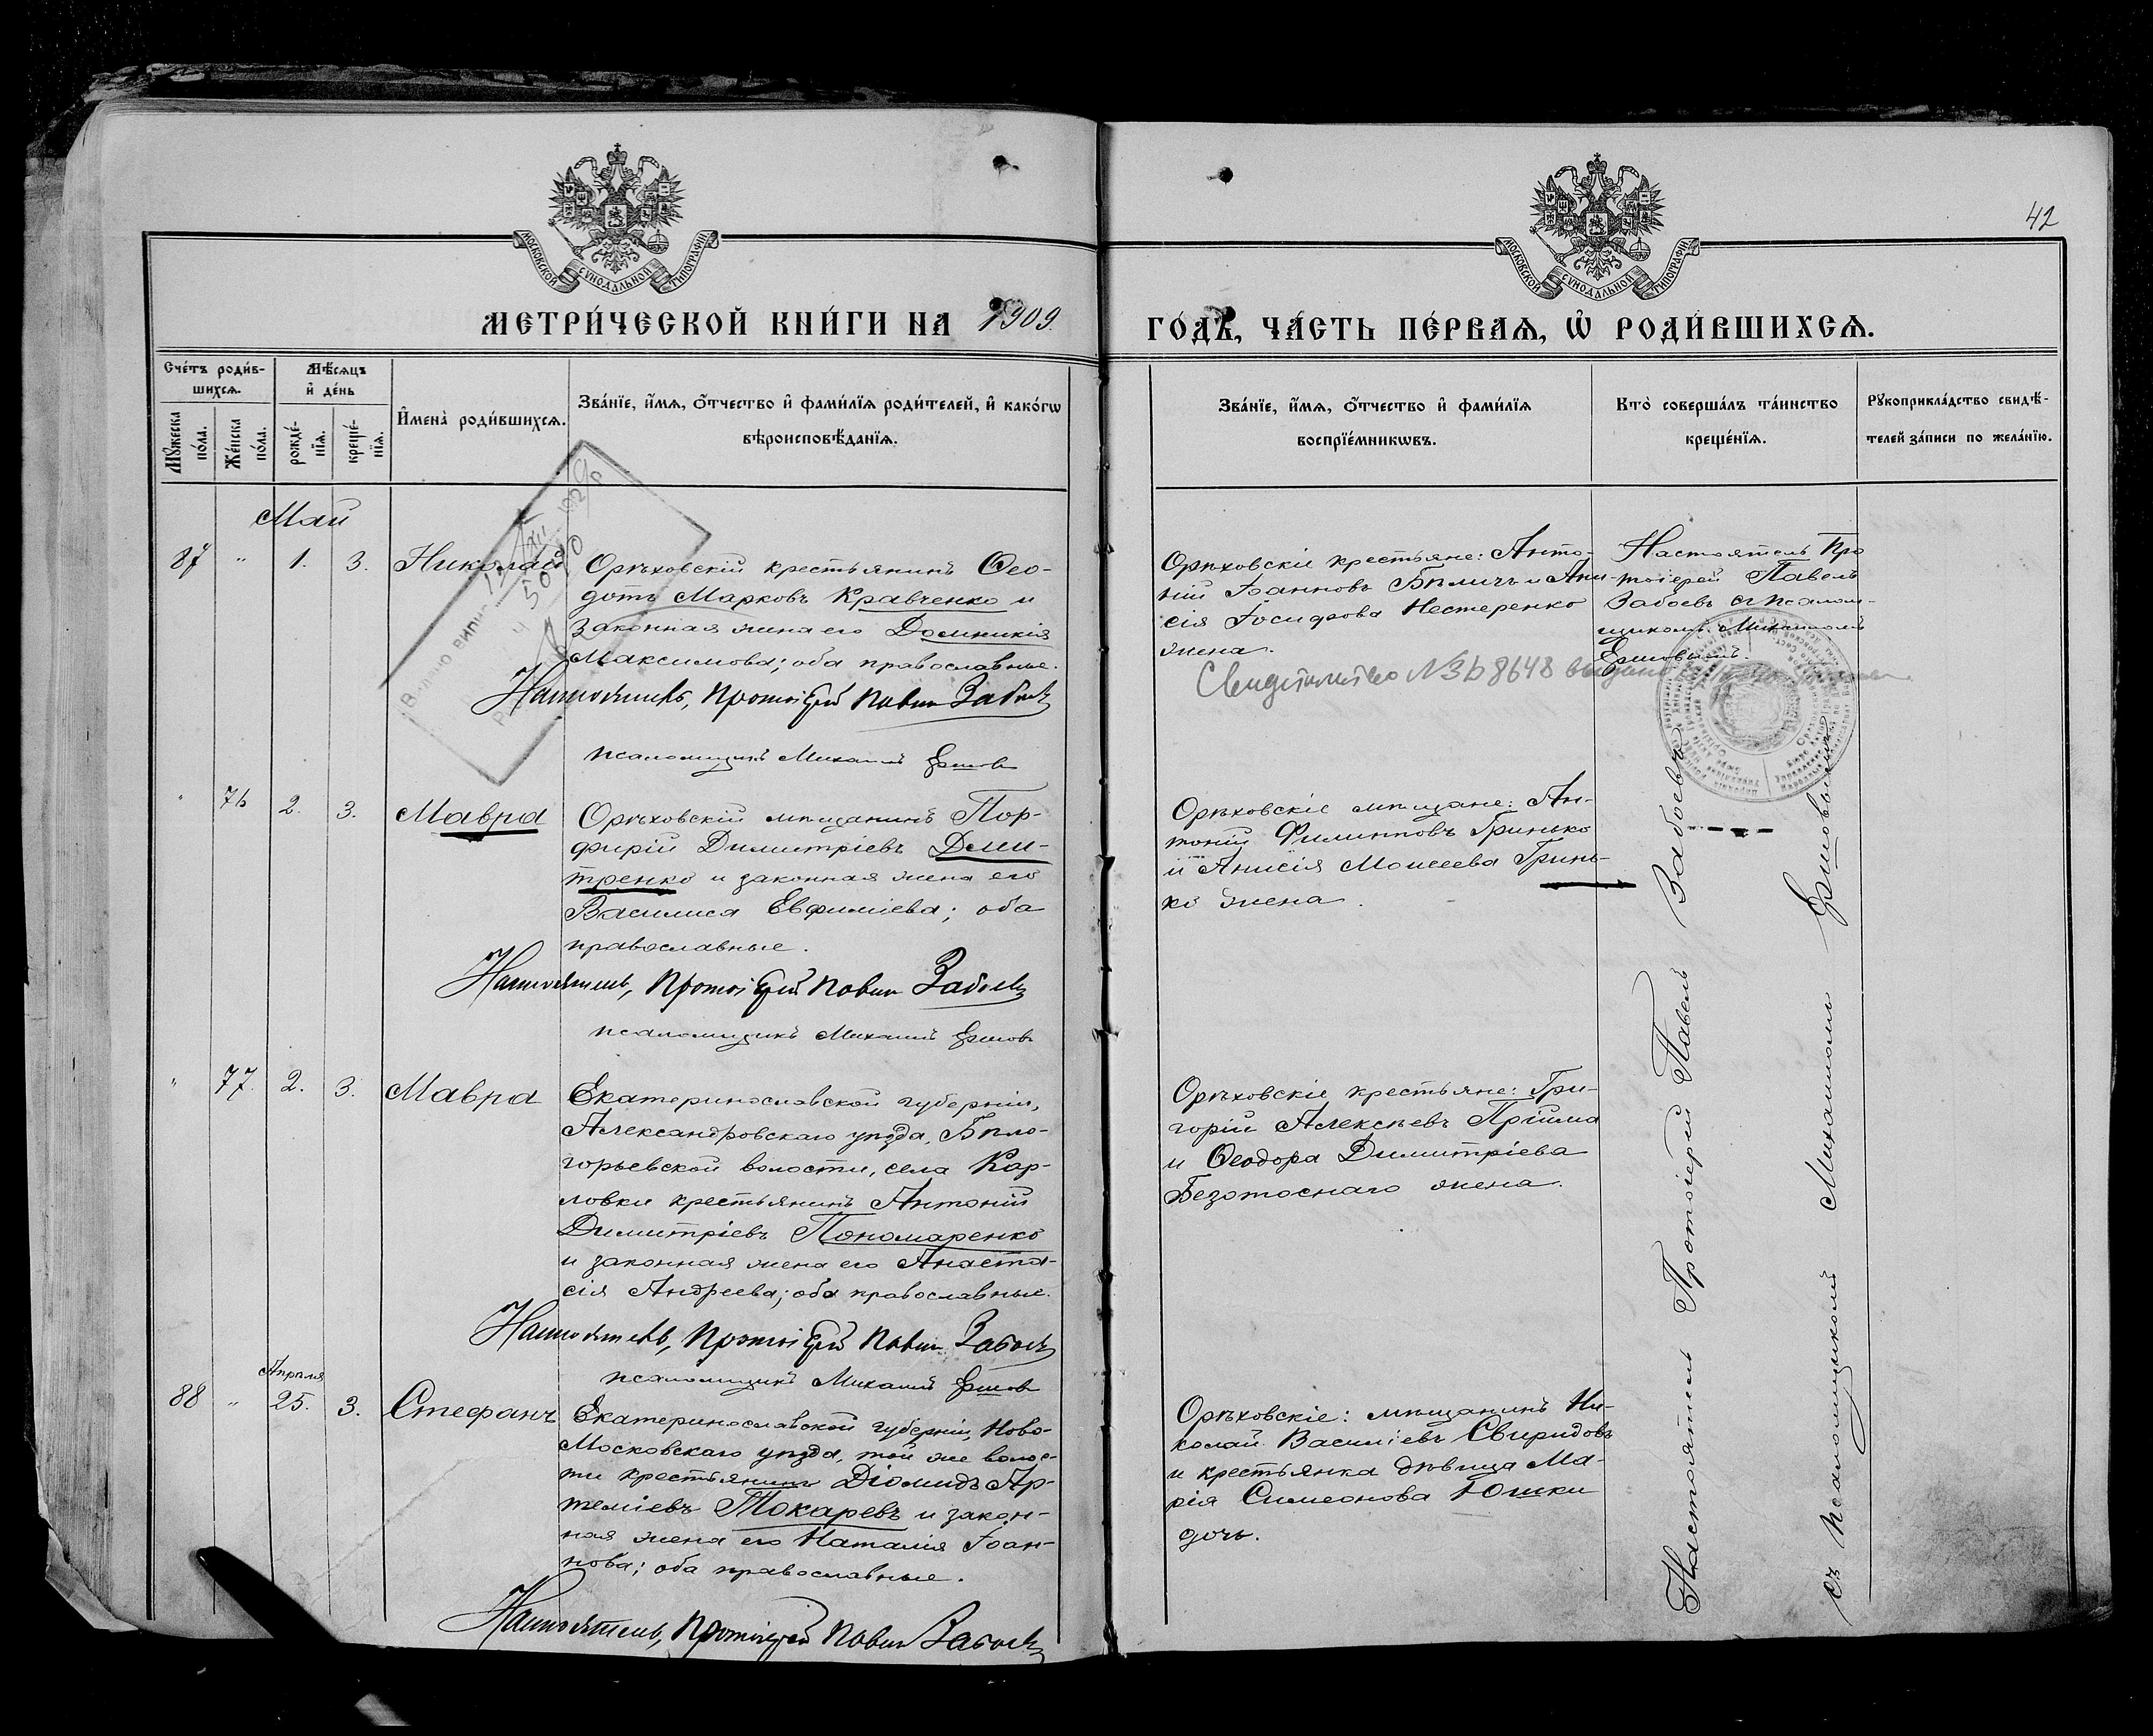 42
МОСКОВСКОЙ СѴНОДАЛЬНОЙ ТИПОГРАФІИ
МОСКОВСКОЙ СѴНОДАЛЬНОЙ ТИПОГРАФІИ
МЕТРИ́ЧЕСКОЙ КНИ́ГИ НА 1909.
ГО́ДЪ, ЧА́СТЬ ПЕ́РВАѦ, Ѡ҆ РОДИ́ВШИХСѦ.
Сче́тъ роди́в-
шихсѧ.
Мꙋжеска по́ла.
Же́нска по́ла.
Мѣ́сѧцъ
и҆ де́нь
рожде́-
нїѧ.
креще́-
нїѧ.
И҆мена̀ роди́вшихсѧ.
Зва́нїе, и҆́мѧ, ѻ҆́тчество и҆ фами́лїѧ роди́телей, и҆ како́гѡ
вѣроисповѣ́данїѧ.
Зва́нїе, и҆́мѧ, ѻ҆́тчество и҆ фами́лїѧ
воспрїе́мникѡвъ.
Кто̀ соверша́лъ та́инство
креще́нїѧ.
Рꙋкоприкла́дство свидѣ́-
телей за́писи по жела́нїю.
Май
87 " 1. 3. Николай
Орѣховскій крестьянинъ Ѳео-
дотъ Марковъ Кравченко и
законная жена его Домникія
Максимова; оба православные.
Настоятель, Протоіерей Павелъ Забоевъ
псаломщикъ Михаилъ Ершовъ
Орѣховскіе крестьяне: Анто-
ній Іоанновъ Бѣличъ и Ани-
сія Іосифова Нестеренко
жена.
Свидѣтельство № 8648 выдано
Настоятель Про
тоіерей Павелъ
Забоевъ съ псалом-
щикомъ Михаиломъ
Ершовымъ.
" 76 2. 3. Мавра
Орѣховскій мѣщанинъ Пор-
фирій Димитріевъ Дми-
тренко и законная жена его
Василиса Евфиміева; оба
православные.
Настоятель, Протоіерей Павелъ Забоевъ
псаломщикъ Михаилъ Ершовъ
Орѣховскіе мѣщане: Ан-
тоній Филипповъ Гринько
и Анисія Моисеева Гринь-
ко жена.
" 77. 2. 3. Мавра
Екатеринославской губерніи,
Александровскаго уѣзда, Бѣло-
горьевской волости, села Кар-
ловки крестьянинъ Антоній
Димитріевъ Пономаренко
и законная жена его Анаста-
сія Андреева; оба православные.
Настоятель, Протоіерей Павелъ Забоевъ
псаломщикъ Михаилъ Ершовъ
Орѣховскіе крестьяне: Гри-
горій Алексѣевъ Прійма
и Ѳеодора Димитріева
Безотоснаго жена.
Апрѣля
88 " 25. 3. Стефанъ
Екатеринославской губерніи, Ново-
Московскаго уѣзда, той же волос-
ти крестьянинъ Діомидъ Ар-
теміевъ Токаревъ и закон-
ная жена его Наталія Іоан-
нова; оба православные.
Настоятель, Протоіерей Павелъ Забоевъ
Орѣховскіе: мѣщанинъ Ни-
колай Василіевъ Свиридовъ
и крестьянка дѣвица Ма-
рія Симеонова Юшки
дочь.
Настоятель Протоіерей Павелъ Забоевъ
съ псаломщикомъ Михаиломъ Ершовымъ